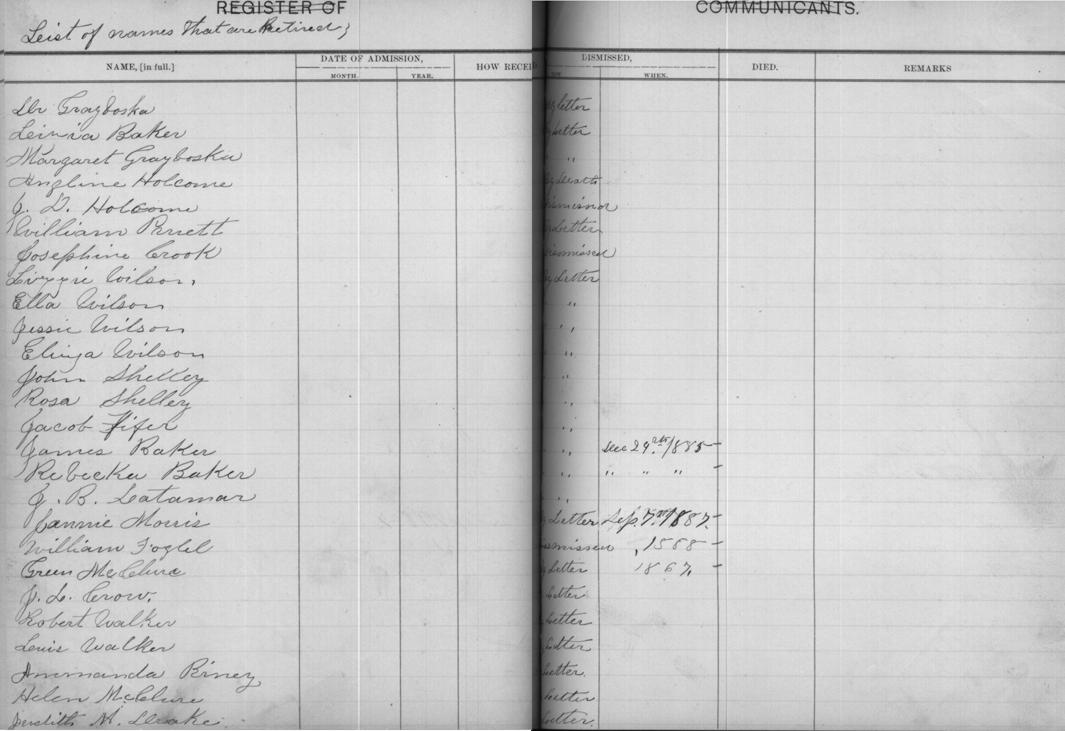 REGISTER OF COMMUNICANTS.
Leist of names that are Retired;
NAME, [in full.] DATE OF ADMISSION, MONTH. YEAR. HOW RECEI DISMISSED, WHEN. DIED. REMARKS
Dr Grayboska letter
Leinia Baker letter
Margaret Grayboska "
Angline Holcome by death
J. D. Holcome
William Pruett Letter
Josephine Crook Dismissed
Lizzie Wilson, by Letter
Ella Wilson "
Jessie Wilson "
Eliza Wilson "
John Shelley "
Rosa Shelley "
Jacob Fifer "
James Baker " Dec 29th 1885-
Rebecka Baker " " " " -
J. B. Latamar "
Fannie Morris Letter Sep. 1887-
William Foglel 1888-
Green McClure Letter 1867, -
J. L. Crow. Letter
Robert Walker Letter
Lewis Walker Letter
Ammanda Birney Letter.
Helen McClure Letter
Meredith M. Drake. Letter.